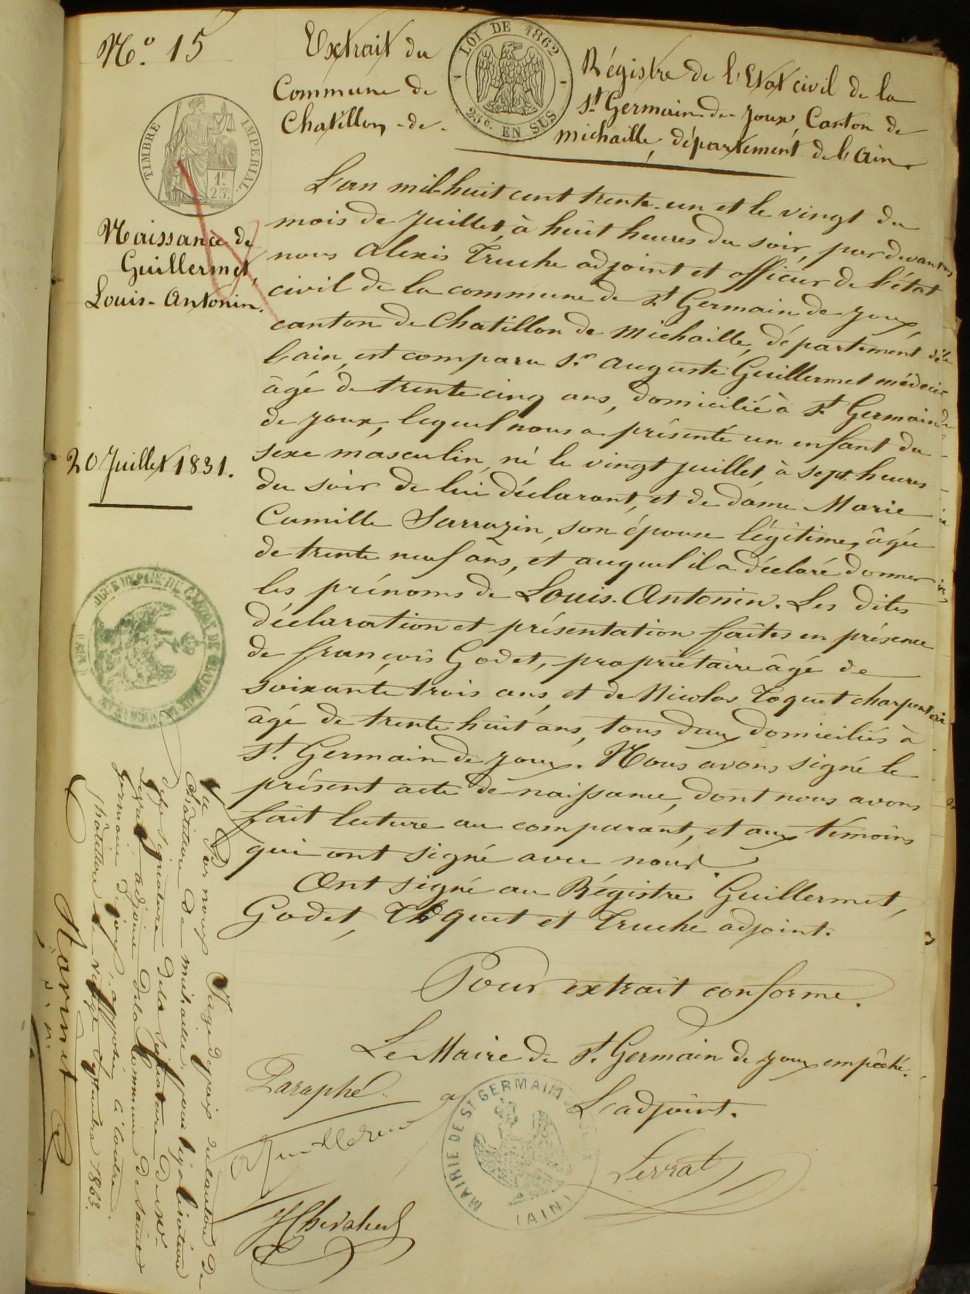 N.º 15
Extrait du Régistre de l'Etat civil de la
Commune de St Germain-de-Joux, Canton de
Chatillon-de-michaille, département de l'ain.
LOI DE 1862
25c. EN SUS
TIMBRE IMPERIAL
1F.
25.
Naissance de
Guillermet,
Louis-Antonin.
20 Juillet 1831.
L'an mil-huit cent trente-un et le vingt du
mois de Juillet, à huit heures du soir, par devant
nous Alexis Truche adjoint et officier de l'état
civil de la commune de St Germain de Joux,
canton de Chatillon de Michaille, département de
l'ain, est comparu Sr Auguste Guillermet médecin
âgé de trente cinq ans, domicilié à St Germain
de Joux, lequel nous a présenté un enfant du
sexe masculin, né le vingt juillet, à sept heures
du soir de lui déclarant, et de dame Marie
Camille Sarrazin, son épouse légitime, âgée
de trente neuf ans, et auquel il a déclaré donner
les prénoms de Louis-Antonin. Les dites
déclaration et présentation faites en présence
de françois Godet, propriétaire âgé de
soixante trois ans, et de Nicolas Toquet charpentier
âgé de trente huit ans, tous deux domiciliés à
St Germain de Joux. Nous avons signé le
présent acte de naissance, dont nous avons
fait lecture au comparant, et aux témoins
qui ont signé avec nous.
Ont signé au Régistre Guillermet,
Godet, Toquet et Truche adjoint.
Pour extrait conforme.
Le Maire de St Germain de Joux empêché.
L'adjoint.
Paraphé
MAIRIE DE ST GERMAIN
(AIN)
Vu Par nous Juge de paix du canton de
Châtillon de michaille, pour légalisation
de la signature de Mr
adjoint de la Commune de Saint
Germain de Joux, apposée ci contre.
Châtillon le vingt 1863.